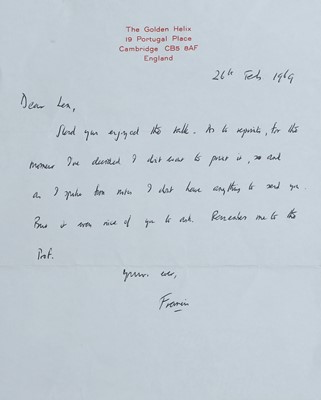 The Golden Helix
19 Portugal Place
Cambridge CB5 8AF
England
26th Feb 1969
Dear Len,
Glad you enjoyed the talk. As to reprints, for the
moment I've decided I don't want to print it, so and
as I spoke from notes I don't have anything to send you.
But it was nice of you to ask. Remember me to the
Prof.
Yours ever,
Francis